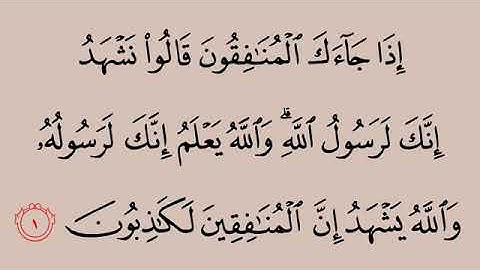 إِذَا جَآءَكَ ٱلْمُنَـٰفِقُونَ قَالُوا۟ نَشْهَدُ
إِنَّكَ لَرَسُولُ ٱللَّهِ ۗ وَٱللَّهُ يَعْلَمُ إِنَّكَ لَرَسُولُهُۥ
وَٱللَّهُ يَشْهَدُ إِنَّ ٱلْمُنَـٰفِقِينَ لَكَـٰذِبُونَ ١